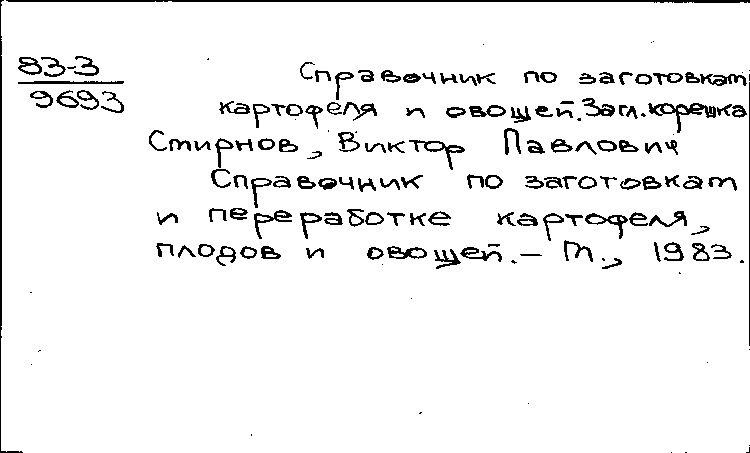 83-3
9693
Справочник по заготовкам
картофеля и овощей. Загл. корешка
Смирнов, Виктор Павлович
Справочник по заготовкам
и переработке картофеля,
плодов и овощей. – М., 1983.